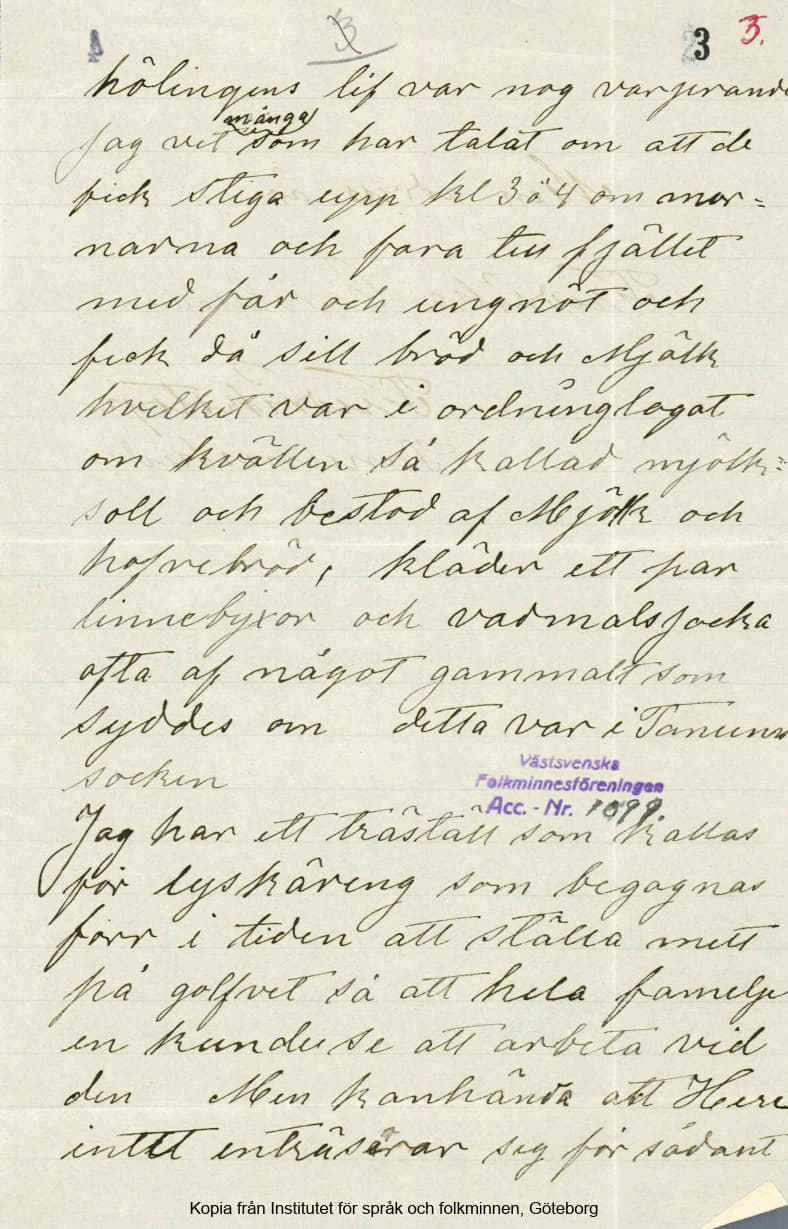 3
33 3.
hölingens lif var nog varjerande
många
Jag vet som har talat om att de
fick stiga upp kl 3 ö 4 om mor=
narna och fara till fjället
med får och ungnöt och
fick då sill bröd och Mjölk
hvilket var i ordninglagat
om kvällen så kallad mjölk=
soll och bestod af Mjölk och
hafrebröd, kläder ett par
linnebyxor och vadmalsjacka
ofta af något gammalt som
syddes om detta var i Tanums
socken
Västsvenska
Folkminnesföreningen
Acc. - Nr. 1099.
Jag har ett träställ som kallas
för lyskäreng som begagnas
förr i tiden att ställa mett
på golfvet så att hela famelje
en kunde se att arbeta vid
den Men kanhända att Herr
intet enträsérar seg för sådant
Kopia från Institutet för språk och folkminnen, Göteborg